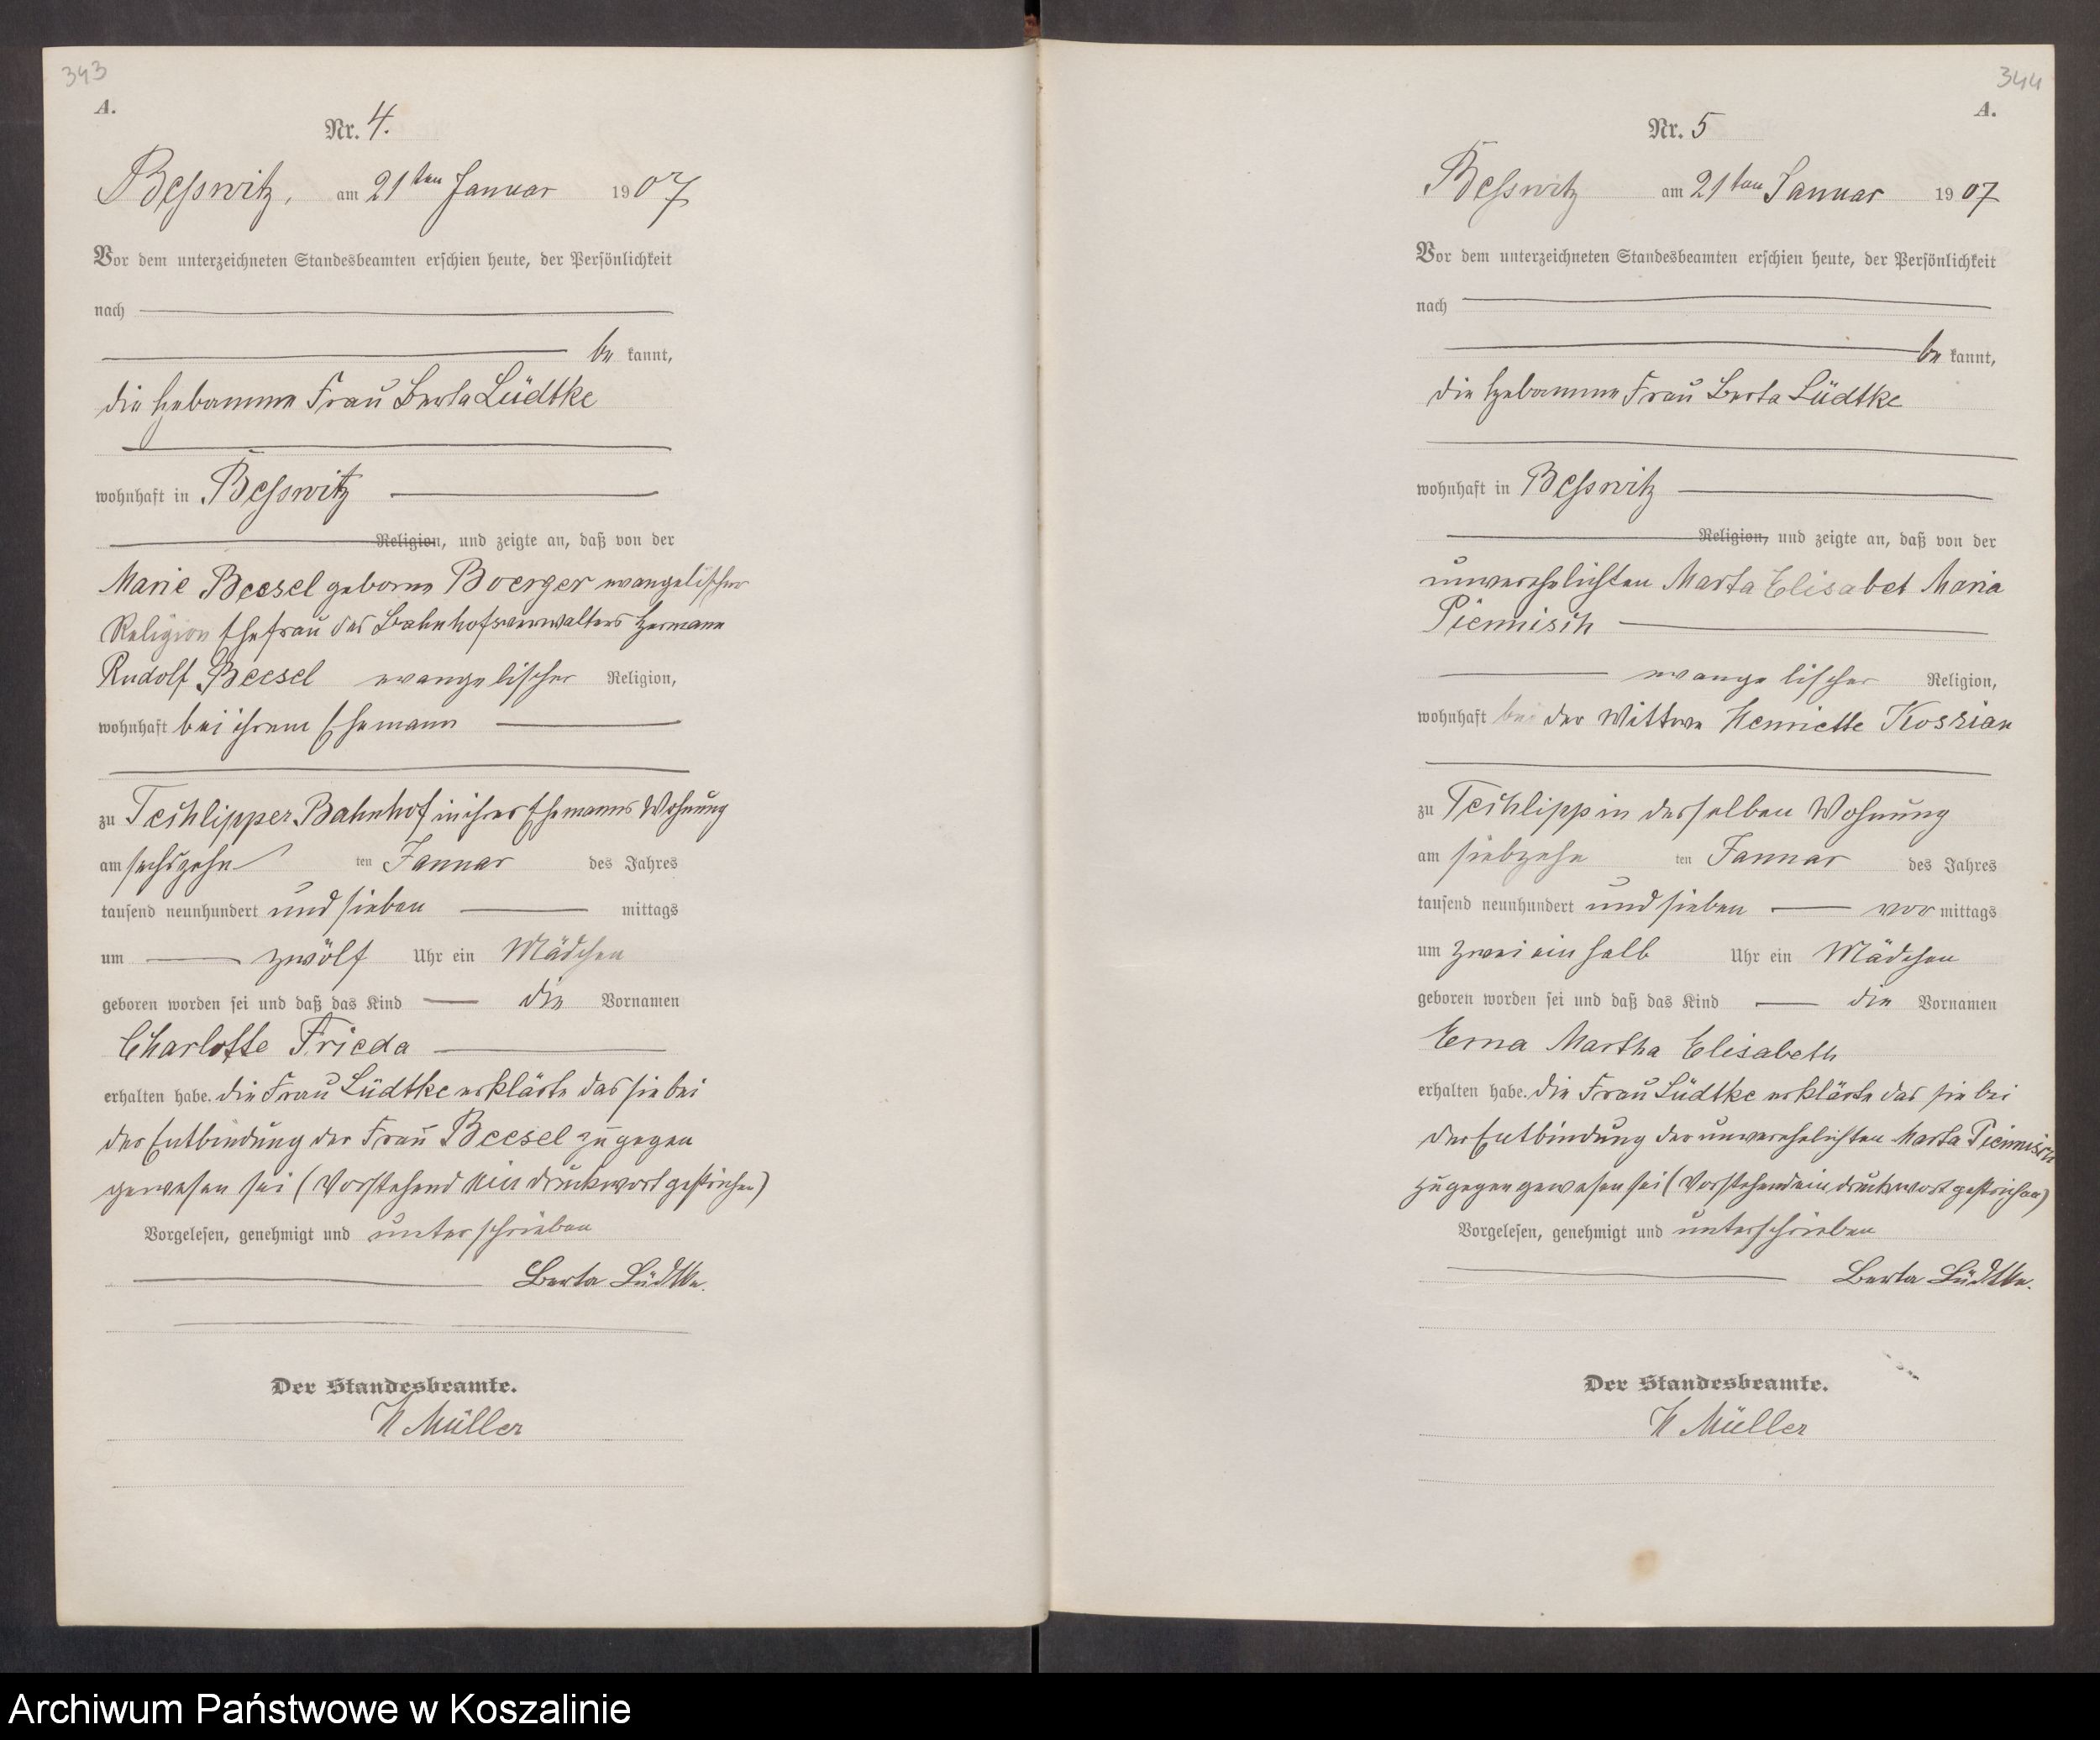 343
A.
Nr. 4.
Beßwitz, am 21ten Januar 1907
Vor dem unterzeichneten Standesbeamten erschien heute, der Persönlichkeit
nach
be kannt,
die Hebamme Frau Berta Lüdtke
wohnhaft in Beßwitz
Religion, und zeigte an, daß von der
Marie Beesel geborne Boerger evangelischer
Religion Ehefrau des Bahnhofsverwalters Hermann
Rudolf Beesel evangelischer Religion,
wohnhaft bei ihrem Ehemann
zu Techlipper Bahnhof in ihres Ehemanns Wohnung
am sechszehn ten Januar des Jahres
tausend neunhundert und sieben mittags
um zwölf Uhr ein Mädchen
geboren worden sei und daß das Kind die Vornamen
Charlotte Frieda
erhalten habe. die Frau Lüdtke erklärte das sie bei
der Entbindung der Frau Beesel zugegen
gewesen sei (Vorstehend ein druckwort gestrichen)
Vorgelesen, genehmigt und unterschrieben
Berta Lüdtke.
Der Standesbeamte.
Müller
344
A.
Nr. 5
Beßwitz am 21ten Januar 1907
Vor dem unterzeichneten Standesbeamten erschien heute, der Persönlichkeit
nach
be kannt,
die Hebamme Frau Berta Lüdtke
wohnhaft in Beßwitz
Religion, und zeigte an, daß von der
unverehelichten Marta Elisabet Maria
Piennisch
evangelischer Religion,
wohnhaft bei der Wittwe Henriette Kossian
zu Techlipp in derselben Wohnung
am siebzehn ten Januar des Jahres
tausend neunhundert und sieben vor mittags
um zwei ein halb Uhr ein Mädchen
geboren worden sei und daß das Kind die Vornamen
Erna Martha Elisabeth
erhalten habe. die Frau Lüdtke erklärte das sie bei
der Entbindung der unverehelichten Marta Piennisch
zugegen gewesen sei (Vorstehend ein druckwort gestrichen)
Vorgelesen, genehmigt und unterschrieben
Berta Lüdtke.
Der Standesbeamte.
Müller
Archiwum Państwowe w Koszalinie